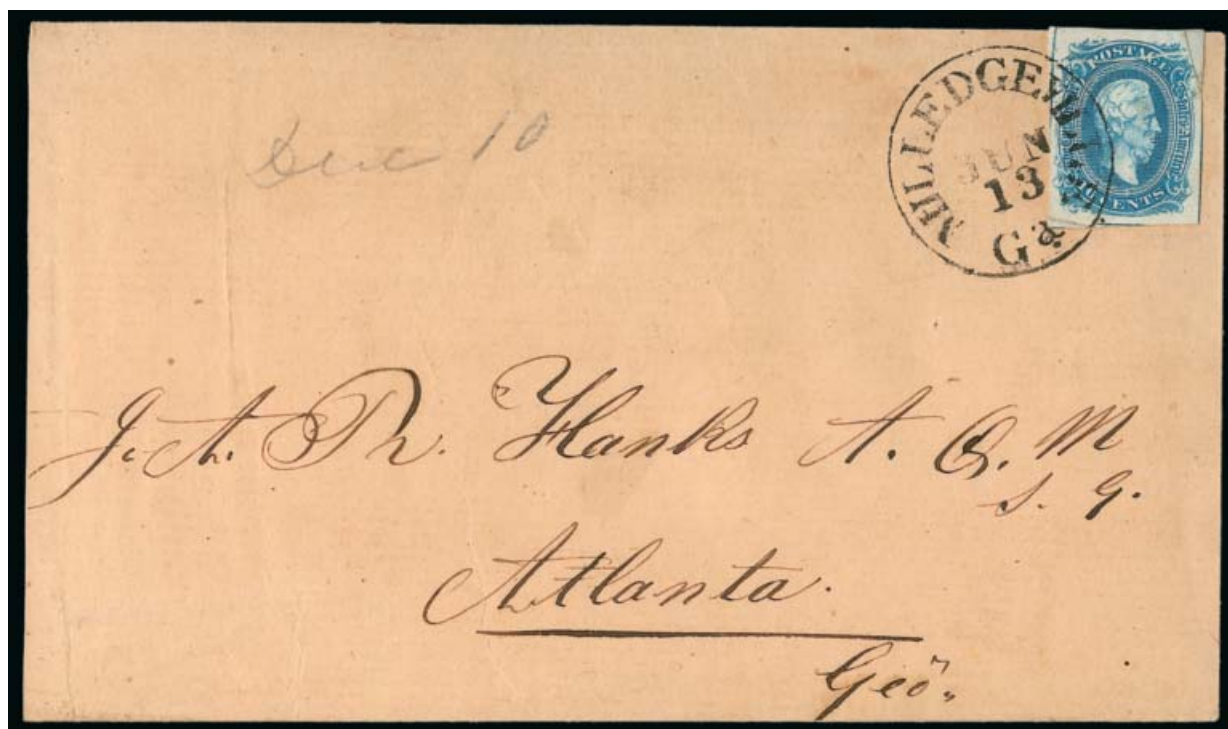 Due 10
MILLEDGEVILLE
JUN
13
Ga.
POSTAGE
CENTS
J. A. Th. Hanks A. Q. M
S. G.
Atlanta.
Geo.